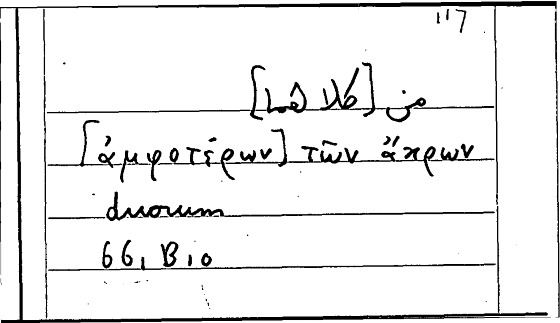 117
من [كلا هما]
[ἀμφοτέρων] τῶν ἄκρων
duorum
66, B, 0